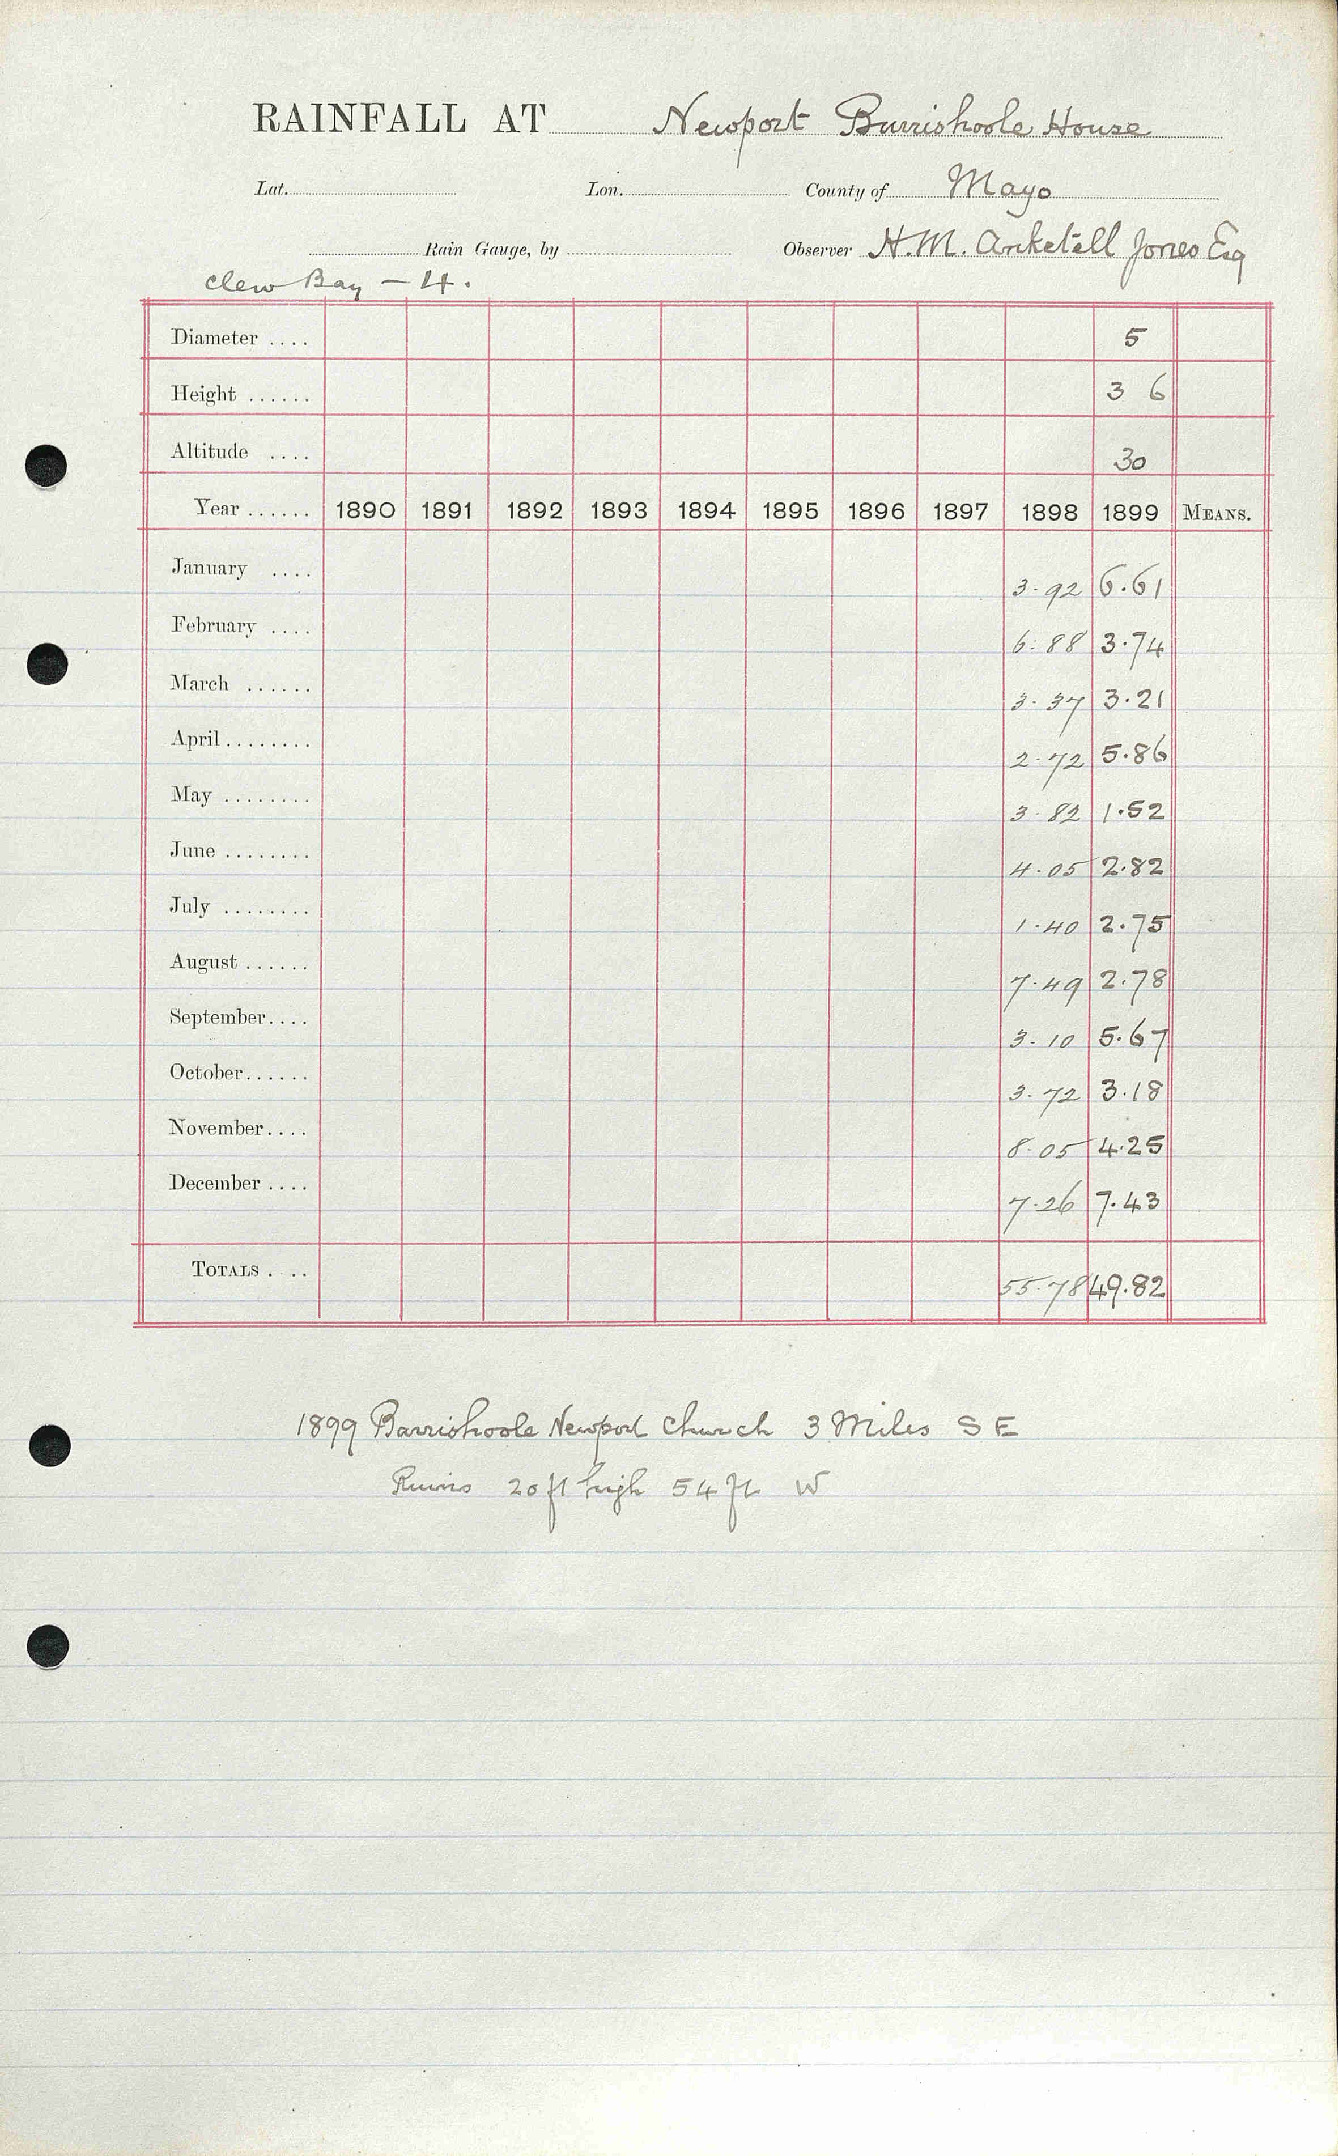 RAINFALL AT Newport Burrishoole House
Lat. Lon. County of Mayo
Rain Gauge, by Observer H.M. Anketell Jones Esq
Clew Bay - 4.
Diameter .... 5
Height ...... 3 6
Altitude .... 30
Year ...... 1890 1891 1892 1893 1894 1895 1896 1897 1898 1899 MEANS.
January .... 3.92 6.61
February .... 6.88 3.74
March ...... 3.37 3.21
April ........ 2.72 5.86
May ........ 3.82 1.52
June ........ 4.05 2.82
July ........ 1.40 2.75
August ...... 7.49 2.78
September.... 3.10 5.67
October...... 3.72 3.18
November.... 8.05 4.25
December .... 7.26 7.43
TOTALS . .. 55.78 49.82
1899 Burrishoole Newport Church 3 Miles S E
Ruins 20 ft high 54 ft W